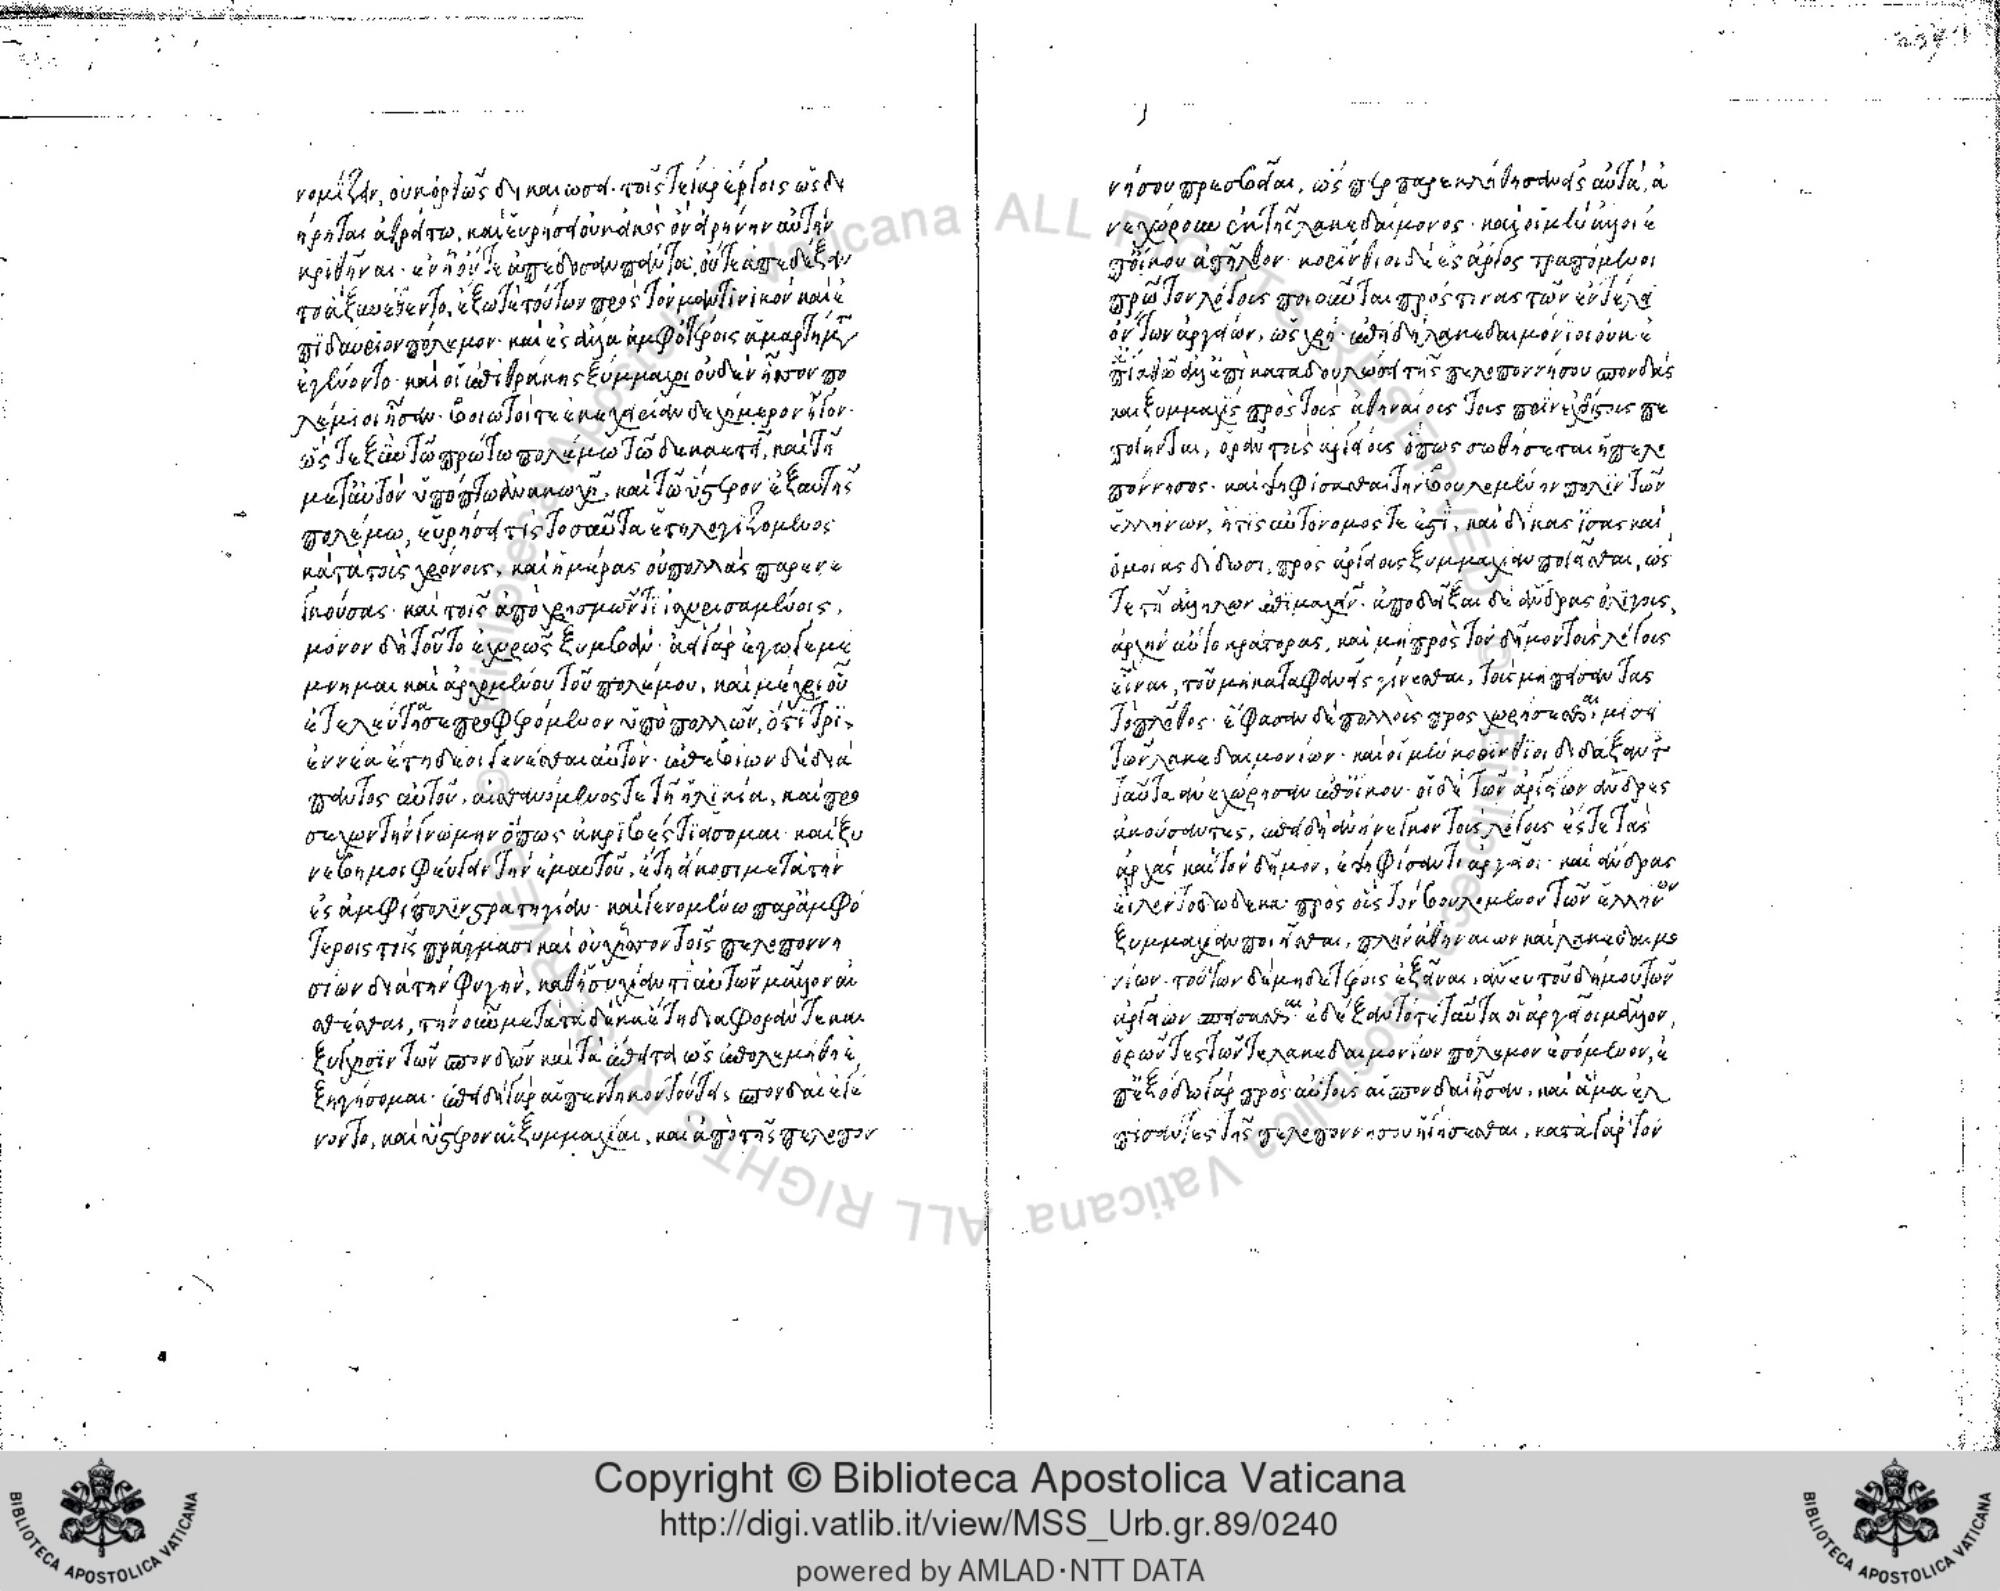 νομίζειν, οὐκ ὀρθῶς δικαιώσει· τοῖς τε γὰρ ἔργοις ὡς δι
ήρηται ἀθρείτω, καὶ εὑρήσει οὐκ εἰκὸς ὂν εἰρήνην αὐτὴν
κριθῆναι· ἐν ἧ οὔτε ἀπέδοσαν πάντα, οὔτε ἀπεδέξαν
το ἃ ξυνέθεντο, ἔξω τε τούτων πρὸς τὸν μαντινικὸν καὶ ἐ
πιδαύριον πόλεμον· καὶ ἐς ἄλλα ἀμφοτέροις ἁμαρτήματα
ἐγένοντο· καὶ οἱ ἐπὶ θράκης ξύμμαχοι οὐδὲν ἧσσον πο
λέμιοι ἦσαν· βοιωτοί τε ἐκεχειρίαν δεχήμερον ἦγον·
ὥστε ξὺν τῶ πρώτω πολέμω τῶ δεκαετεῖ, καὶ τῆ
μετ' αὐτὸν ὑπόπτω ἀνακωχῆ, καὶ τῶ ὕστερον ἐξ αὐτῆς
πολέμω, εὑρήσει τις τοσαῦτα ἔτη λογιζόμενος
κατὰ τοὺς χρόνους, καὶ ἡμέρας οὐ πολλὰς παρενε
γκούσας· καὶ τοῖς ἀπὸ χρησμῶν τι ἰσχυρισαμένοις,
μόνον δὴ τοῦτο ἐχυρῶς ξυμβάν· αἰεὶ γὰρ ἔγωγε μέ
μνημαι καὶ ἀρχομένου τοῦ πολέμου, καὶ μέχρι οὗ
ἐτελεύτησε προφερόμενον ὑπὸ πολλῶν, ὅτι τρὶς
ἐννέα ἔτη δέοι γενέσθαι αὐτόν· ἐπεβίων δὲ διὰ
παντὸς αὐτοῦ, αἰσθανόμενός τε τῆ ἡλικία, καὶ προ
σέχων τὴν γνώμην ὅπως ἀκριβές τι εἴσομαι· καὶ ξυ
νέβη μοι φεύγειν τὴν ἐμαυτοῦ, ἔτη εἴκοσι μετὰ τὴν
ἐς ἀμφίπολιν στρατηγίαν· καὶ γενομένω παρ' ἀμφο
τέροις τοῖς πράγμασι καὶ οὐχ ἧσσον τοῖς πελοποννη
σίων διὰ τὴν φυγήν, καθ' ἡσυχίαν τι αὐτῶν μᾶλλον αἰ
σθέσθαι, τὴν οὖν μετὰ τὰ δέκα ἔτη διαφοράν τε καὶ
ξύγχυσιν τῶν σπονδῶν καὶ τὰ ἔπειτα ὡς ἐπολεμήθη, ἐ
ξηγήσομαι· ἐπειδὴ γὰρ αἱ πεντηκοντούτεις σπονδαὶ ἐγέ
νοντο, καὶ ὕστερον αἱ ξυμμαχίαι, καὶ ἀπὸ τῆς πελοπον
νήσου πρεσβεῖαι, ὥσπερ παρεκλήθησαν ἐς αὐτά, ἀ
νεχώρουν ἐκ τῆς λακεδαίμονος· καὶ οἱ μὲν ἄλλοι ἐ
π' οἴκου ἀπῆλθον· κορίνθιοι δὲ ἐς ἄργος τραπόμενοι
πρῶτον λόγους ποιοῦνται πρός τινας τῶν ἐν τέλει
ὄντων ἀργείων, ὡς χρή· ἐπειδὴ λακεδαιμόνιοι οὐκ ἐ
π' ἀγαθῶ ἀλλ' ἐπὶ καταδουλώσει τῆς πελοποννήσου σπονδὰς
καὶ ξυμμαχίας πρὸς τοὺς ἀθηναίους τοὺς πρὶν ἐχθίστους πε
ποίηνται, ὁρᾶν τοὺς ἀργείους ὅπως σωθήσεται ἡ πελο
πόννησος· καὶ ψηφίσασθαι τὴν βουλομένην πόλιν τῶν
ἑλλήνων, ἥτις αὐτόνομός τέ ἐστι, καὶ δίκας ἴσας καὶ
ὁμοίας δίδωσι, πρὸς ἀργείους ξυμμαχίαν ποιεῖσθαι, ὥσ
τε τῆ ἀλλήλων ἐπιμαχεῖν· ἀποδεῖξαι δὲ ἄνδρας ὀλίγους,
ἀρχὴν αὐτοκράτορας, καὶ μὴ πρὸς τὸν δῆμον τοὺς λόγους
εἶναι, τοῦ μὴ καταφανεῖς γίνεσθαι, τοὺς μὴ πείσαντας
τὸ πλῆθος· ἔφασαν δὲ πολλοὺς προσχωρήσεσθαι μίσει
τῶν λακεδαιμονίων· καὶ οἱ μὲν κορίνθιοι διδάξαντες
ταῦτα ἀνεχώρησαν ἐπ' οἴκου· οἱ δὲ τῶν ἀργείων ἄνδρες
ἀκούσαντες, ἐπειδὴ ἀνήνεγκον τοὺς λόγους ἔς τε τὰς
ἀρχὰς καὶ τὸν δῆμον, ἐψηφίσαντο ἀργεῖοι· καὶ ἄνδρας
εἵλοντο δώδεκα πρὸς οὓς τὸν βουλόμενον τῶν ἑλλήνων
ξυμμαχίαν ποιεῖσθαι, πλὴν ἀθηναίων καὶ λακεδαιμο
νίων· τούτων δὲ μηδετέροις ἐξεῖναι, ἄνευ τοῦ δήμου τῶν
ἀργείων σπείσασθαι· ἐδέξαντό τε ταῦτα οἱ ἀργεῖοι μᾶλλον,
ὁρῶντες τῶν τε λακεδαιμονίων πόλεμον ἐσόμενον, ἐ
π' ἐξόδω γὰρ πρὸς αὐτοὺς αἱ σπονδαὶ ἦσαν, καὶ ἅμα ἐλ
πίσαντες τῆς πελοποννήσου ἡγήσεσθαι, κατὰ γὰρ τὸν
Copyright © Biblioteca Apostolica Vaticana
http://digi.vatlib.it/view/MSS_Urb.gr.89/0240
powered by AMLAD·NTT DATA